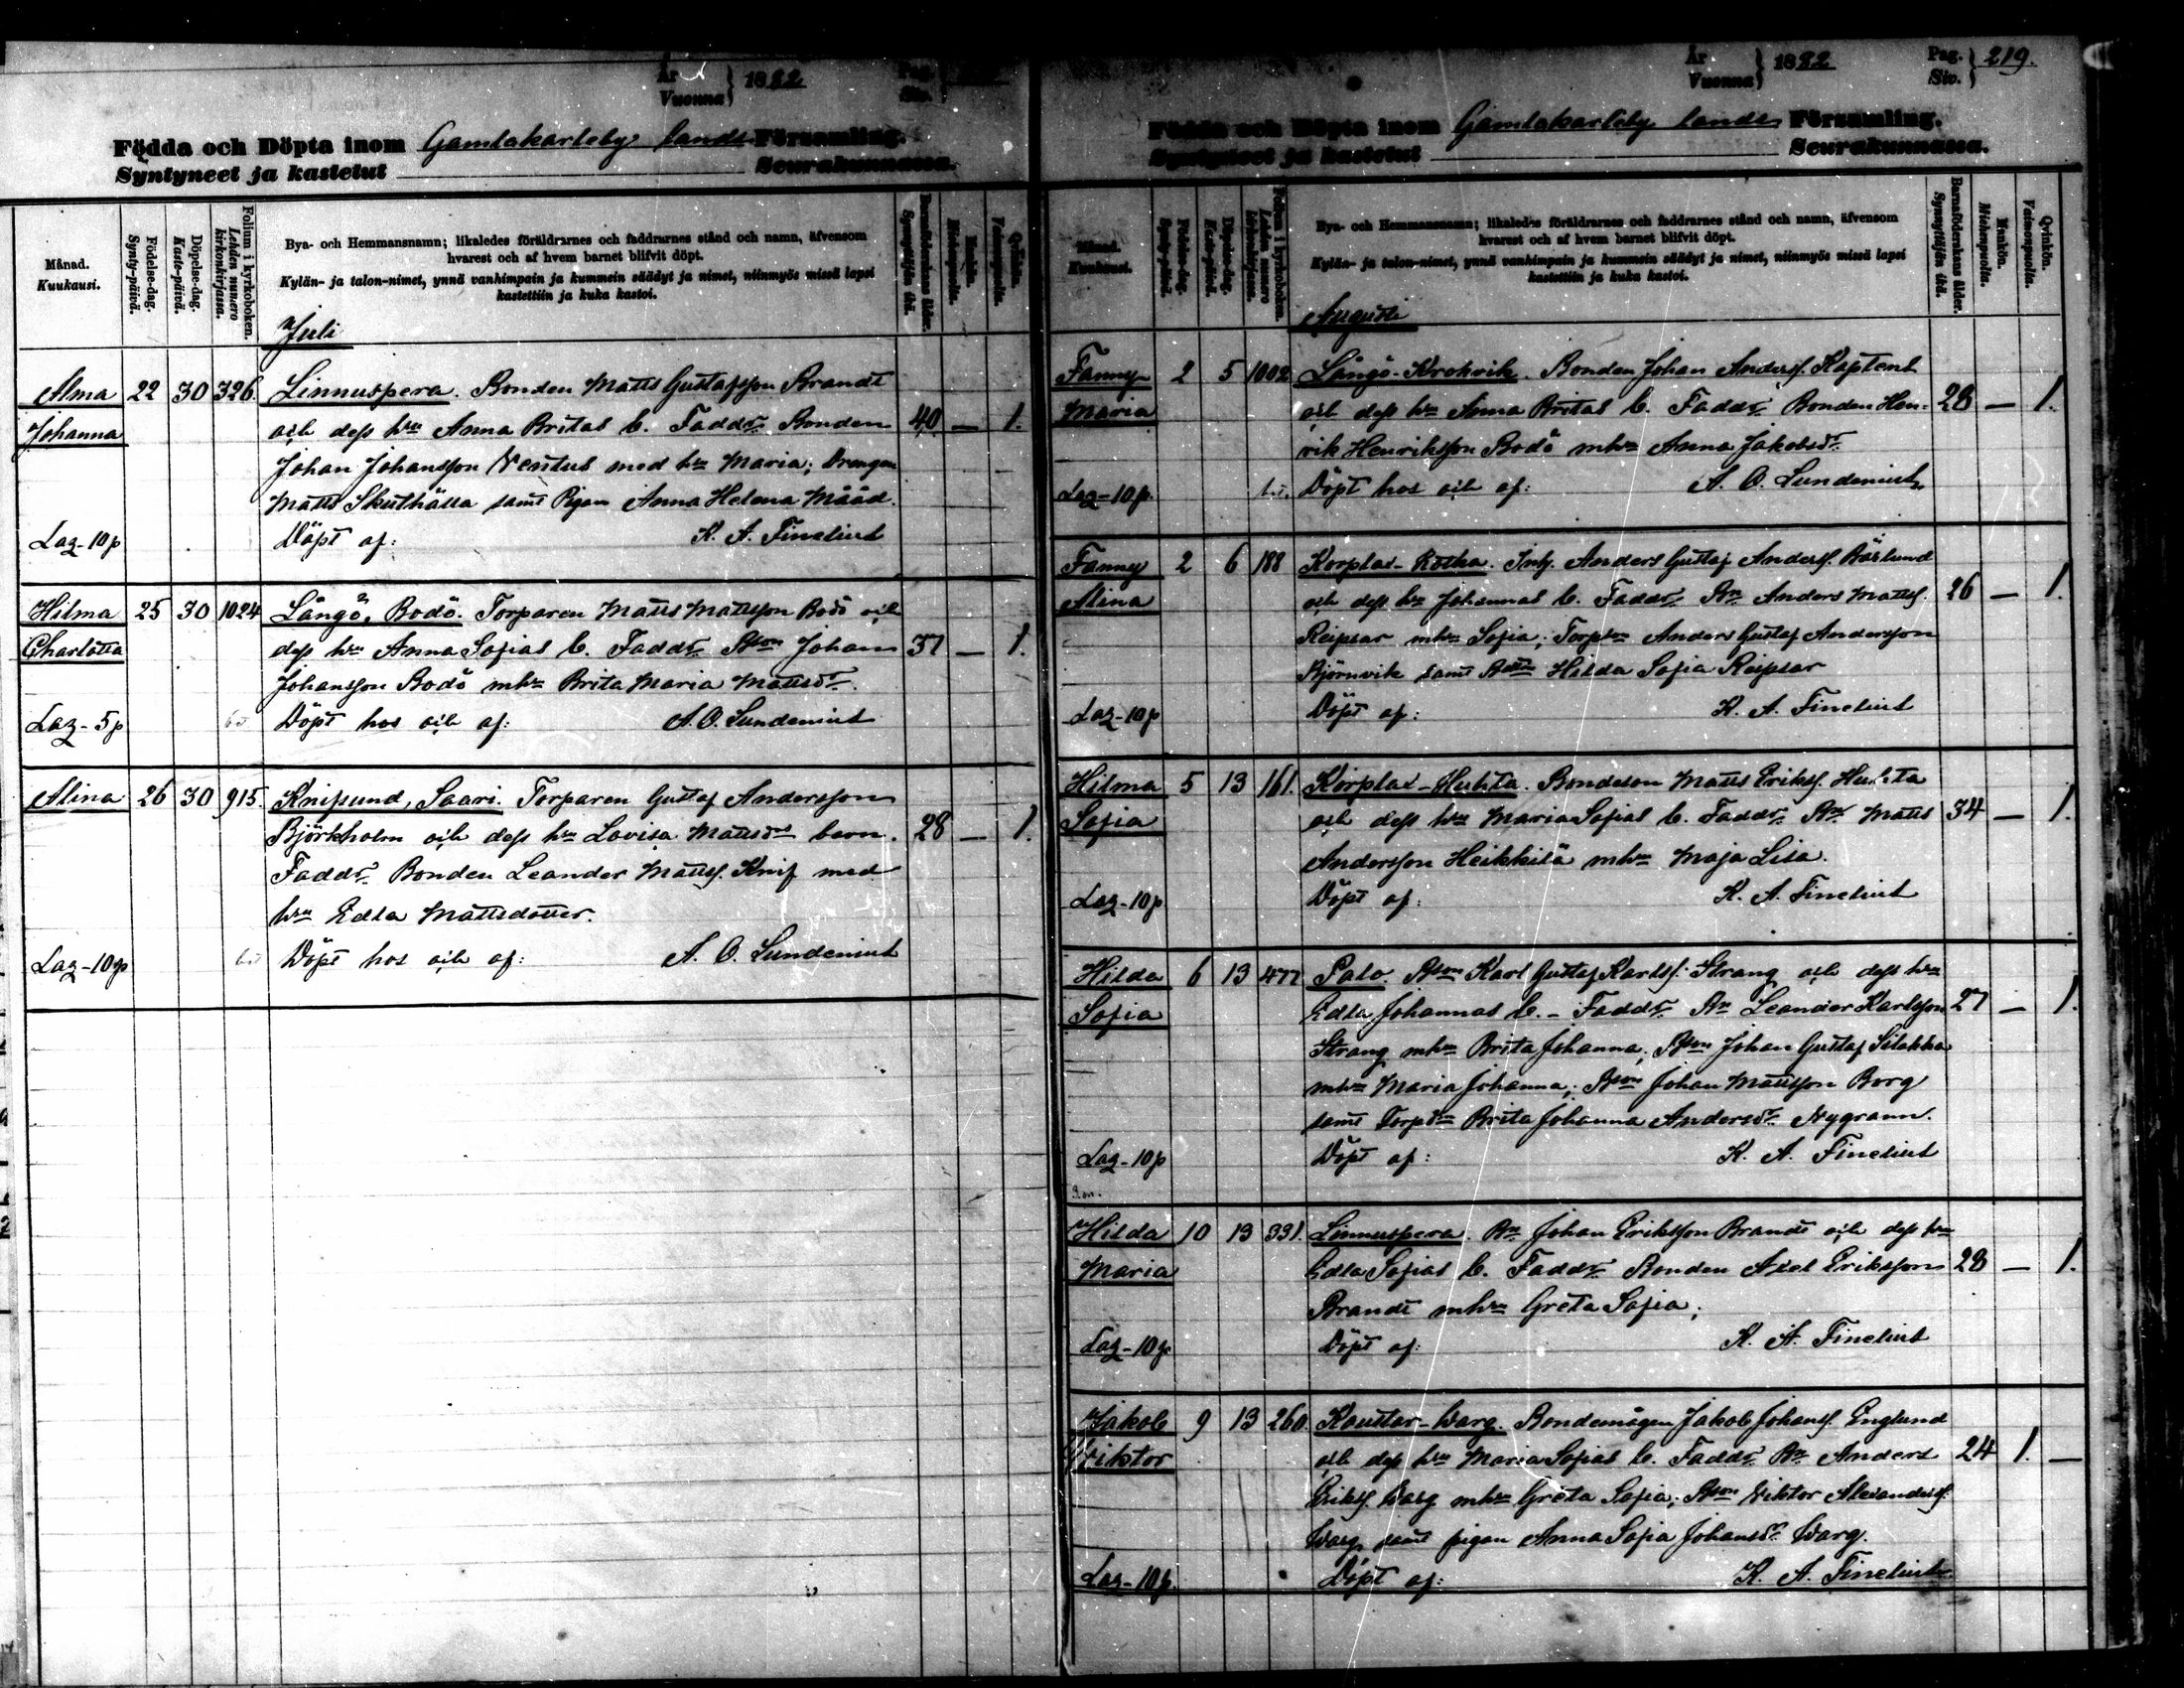 År
Vuonna } 1882
Pag.
Siv.
Födda och Döpta inom Gamlakarleby lands Församling.
Syntyneet ja kastetut Seurakunnassa.
Månad.
Kuukausi.
Födelse-dag.
Synty-päivä.
Döpelse-dag.
Kaste-päivä.
Folium i kyrkoboken.
Lehden numero kirkonkirjassa.
Bya- och Hemmansnamn; likaledes föräldrarnes och faddrarnes stånd och namn, äfvensom
hvarest och af hvem barnet blifvit döpt.
Kylän- ja talon-nimet, ynnä vanhimpain ja kummein säädyt ja nimet, niinmyös missä lapsi
kastettiin ja kuka kastoi.
Barnaföderskans ålder.
Synnyttäjän ikä.
Juli
Alma 22 30 326. Linnuspera. Bonden Matts Gustafsson Brandt
Johanna och dess hru Anna Britas b. Faddr. Bonden 40 — 1.
Johan Johansson Ventus med hru Maria; Drengen
Matts Skuthälla samt Pigan Anna Helena Mååd.
Laz-10p Döpt af: K. A. Finelius
Hilma 25 30 1024 Långö, Bodö. Torparen Matts Mattsson Bodö och
Charlotta dess hru Anna Sofias b. Faddr. Bson Johan 37 — 1.
Johansson Bodö mhru Brita Maria Mattsdr.
Laz-5p Döpt hos och af: A. O. Sundenius
Alina 26 30 915. Knifsund, Saari. Torparen Gustaf Andersson
Björkholm och dess hru Lovisa Mattsdrs barn. 28 — 1.
Faddr. Bonden Leander Mattss. Knif med
hru Edla Mattsdotter.
Laz-10p Döpt hos och af: A. O. Sundenius
År
Vuonna } 1882
Pag.
Siv. } 219.
Födda och Döpta inom Gamlakarleby lands Församling.
Syntyneet ja kastetut Seurakunnassa.
Månad.
Kuukausi.
Födelse-dag.
Synty-päivä.
Döpelse-dag.
Kaste-päivä.
Folium i kyrkoboken.
Lehden numero kirkonkirjassa.
Bya- och Hemmansnamn; likaledes föräldrarnes och faddrarnes stånd och namn, äfvensom
hvarest och af hvem barnet blifvit döpt.
Kylän- ja talon-nimet, ynnä vanhimpain ja kummein säädyt ja nimet, niinmyös missä lapsi
kastettiin ja kuka kastoi.
Barnaföderskans ålder.
Synnyttäjän ikä.
Mankön.
Miehenpuolta.
Qvinkön.
Vaimonpuolta.
Augusti
Fanny 2 5 1002 Långö-Krokvik. Bonden Johan Anderss. Kaptens
Maria och dess hru Anna Britas b. Faddr. Bonden Hen- 28 — 1.
rik Henriksson Bodö mhru Anna Jakobsdr.
Laz-10p. Döpt hos och af: A. O. Sundenius
Fanny 2 6 188 Korplax-Rotka. Inh. Anders Gustaf Anderss. Bäslund
Alina och dess hru Johannas b. Faddr. Bn Anders Mattss. 26 — 1.
Reipsar mhru Sofia; Torpson Anders Gustaf Andersson
Björnvik samt Bdtr Hilda Sofia Reipsar
Laz-10p Döpt af: K. A. Finelius
Hilma 5 13 161. Korplax-Huhta. Bondeson Matts Erikss. Huhta
Sofia och dess hru Maria Sofias b. Faddr. Bn Matts 34 — 1.
Andersson Heikkilä mhru Maja Lisa.
Laz-10p Döpt af: K. A. Finelius
Hilda 6 13 477 Palo. Bson Karl Gustaf Karlss. Strang och dess hru
Sofia Edla Johannas b. - Faddr. Bn Leander Karlsson 27 — 1.
Strang mhru Brita Johanna; Bson Johan Gustaf Silakka
mhru Maria Johanna; Bson Johan Mattsson Borg
samt Torpdtr Brita Johanna Andersdr. Nygrann.
Laz-10p Döpt af: K. A. Finelius
Hilda 10 13 331. Linnuspera. Bn Johan Eriksson Brandt och dess hru
Maria Edla Sofias b. Faddr. Bonden Axel Eriksson 28 — 1.
Brandt mhru Greta Sofia;
Laz-10p Döpt af: K. A. Finelius
Jakob 9 13 260. Kaustar-Warg. Bondemågen Jakob Johanss. Englund
Wiktor och dess hru Maria Sofias b. Faddr. Bn Anders 24 1. —
Erikss. Warg mhru Greta Sofia; Bson Wiktor Alexanderss.
Warg samt pigan Anna Sofia Johansdr. Warg.
Laz-10p. Döpt af: K. A. Finelius